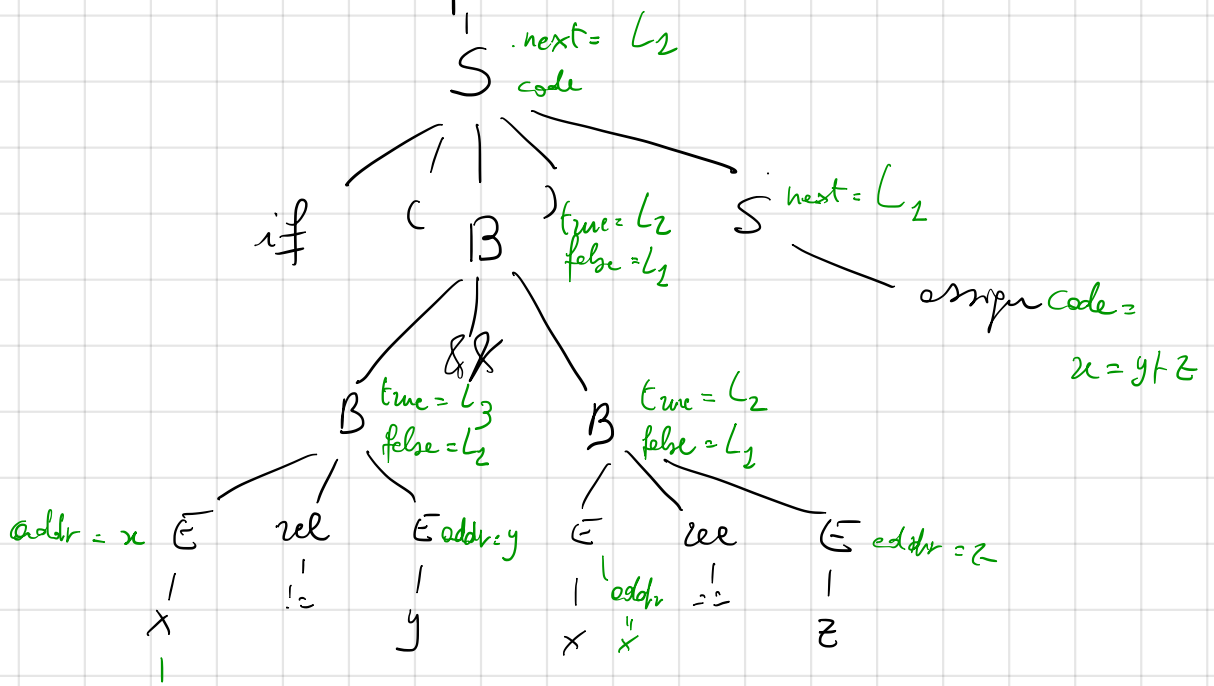 S .next = L1
code
if ( B ) true = L2
false = L1
S next = L1
assign code =
x = y + z
&&
B true = L3
false = L1
B true = L2
false = L1
addr = x E rel E addr = y
E rel E addr = z
!= addr ==
x y x " z
x